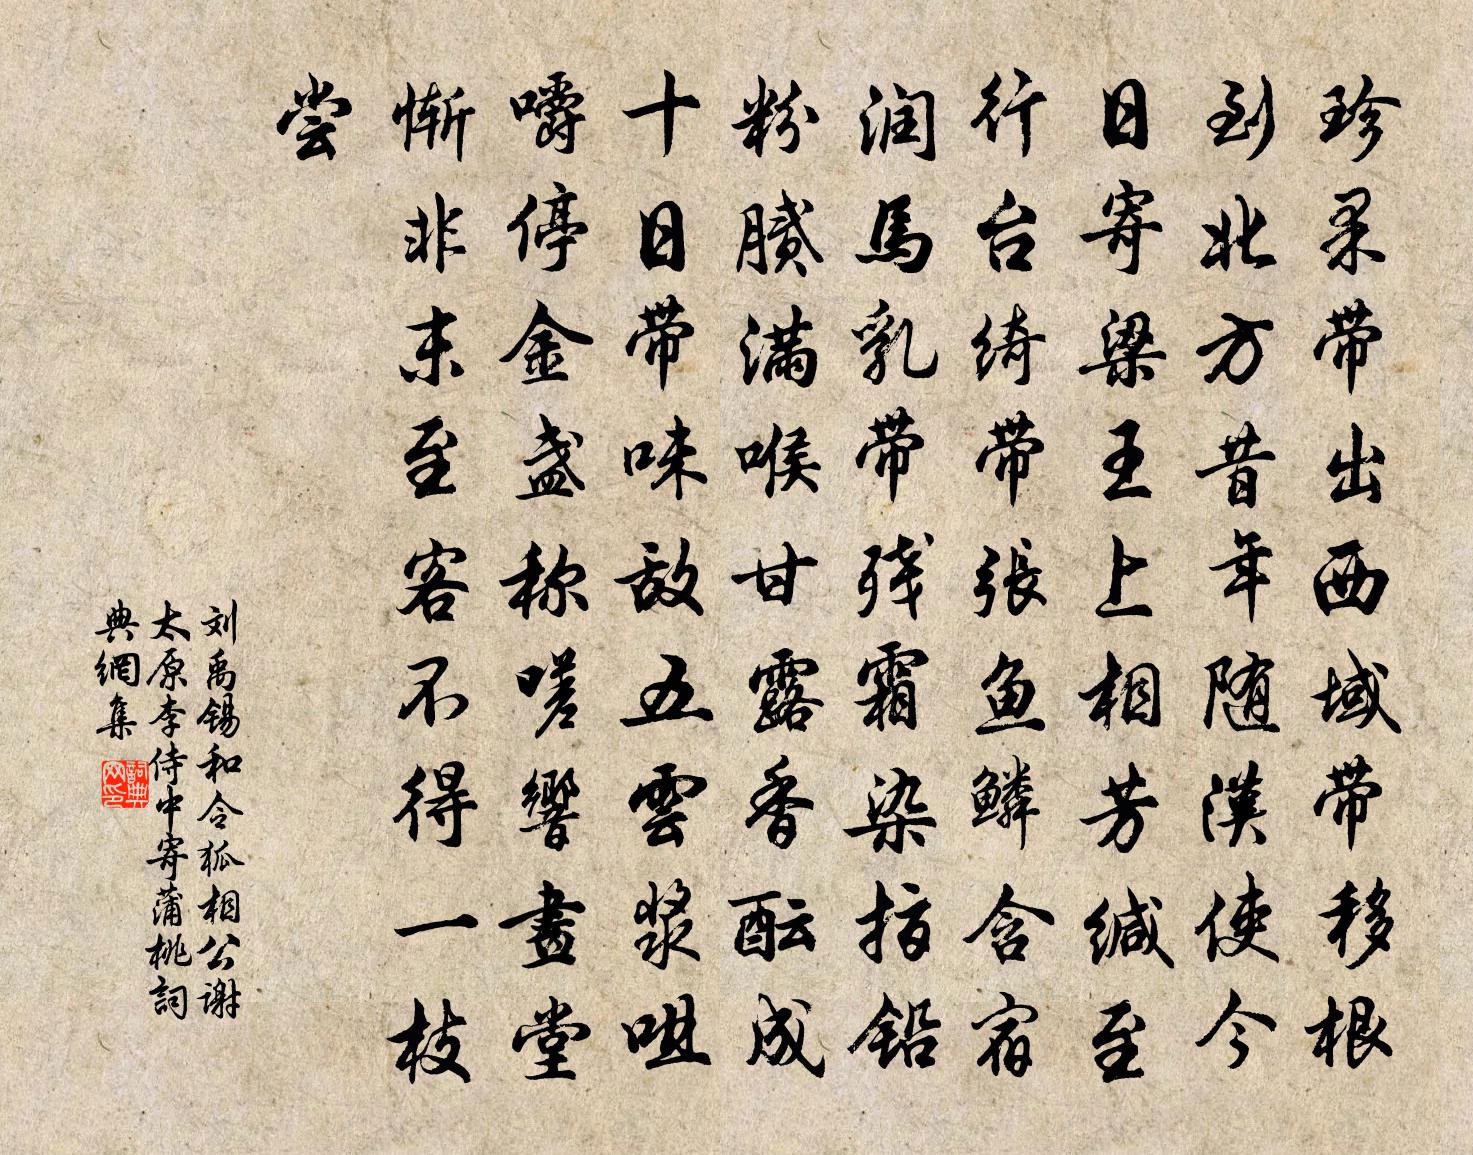 珍果带出西域带移根
到北方昔年随漢使今
日寄梁王上相芳缄至
行台绮带張鱼鳞含宿
润馬乳带残霜染指铅
粉腻满喉甘露香酝成
十日带味敌五雲漿咀
嚼停金盏称嗟響畫堂
惭非末至客不得一枝
尝
刘禹锡和令狐相公谢
太原李侍中寄蒲桃詞
典網集
詞典
网印